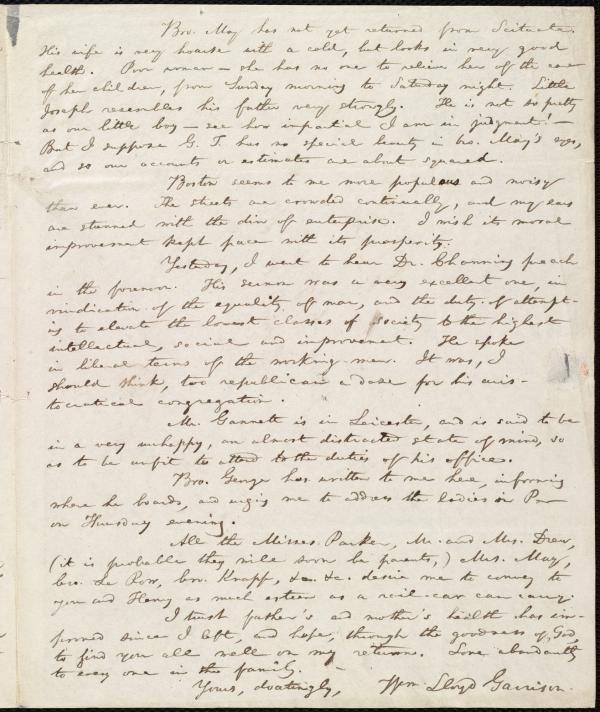 Bro. May has not yet returned from Scituate.
His wife is very hoarse with a cold, but looks in very good
health. Poor woman — she has no one to relieve her of the care
of her children, from Sunday morning to Saturday night. Little
Joseph resembles his father very strongly. He is not so pretty
as our little boy — see how impartial I am in judgment! —
But I suppose G. T. has no special beauty in bro. May's eyes,
and so our accounts or estimates are about squared.
Boston seems to me more populous and noisy
than ever. The streets are crowded continually, and my ears
are stunned with the din of enterprise. I wish its moral
improvement kept pace with its prosperity.
Yesterday, I went to hear Dr. Channing preach
in the forenoon. His sermon was a very excellent one, in
vindication of the equality of man, and the duty of attempt-
ing to elevate the lowest classes of society to the highest
intellectual, social and improvement. He spoke
in liberal terms of the working-men. It was, I
should think, too republican a dose for his aris-
tocratical congregation.
Mr. Gannett is in Leicester, and is said to be
in a very unhappy, an almost distracted state of mind, so
as to be unfit to attend to the duties of his office.
Bro. George has written to me here, informing
where he boards, and urging me to address the ladies in Prov
on Thursday evening.
All the Misses Parker, Mr. and Mrs. Drew,
(it is probable they will soon be parents,) Mrs. May,
bro. Le Row, bro. Knapp, &c. &c. desire me to convey to
you and Henry as much esteem as a rail-car can carry.
I trust father's and mother's health has im-
proved since I left, and hope, through the goodness of God,
to find you all well on my return. Love abundantly
to every one in the family. —
Yours, doatingly, Wm. Lloyd Garrison.